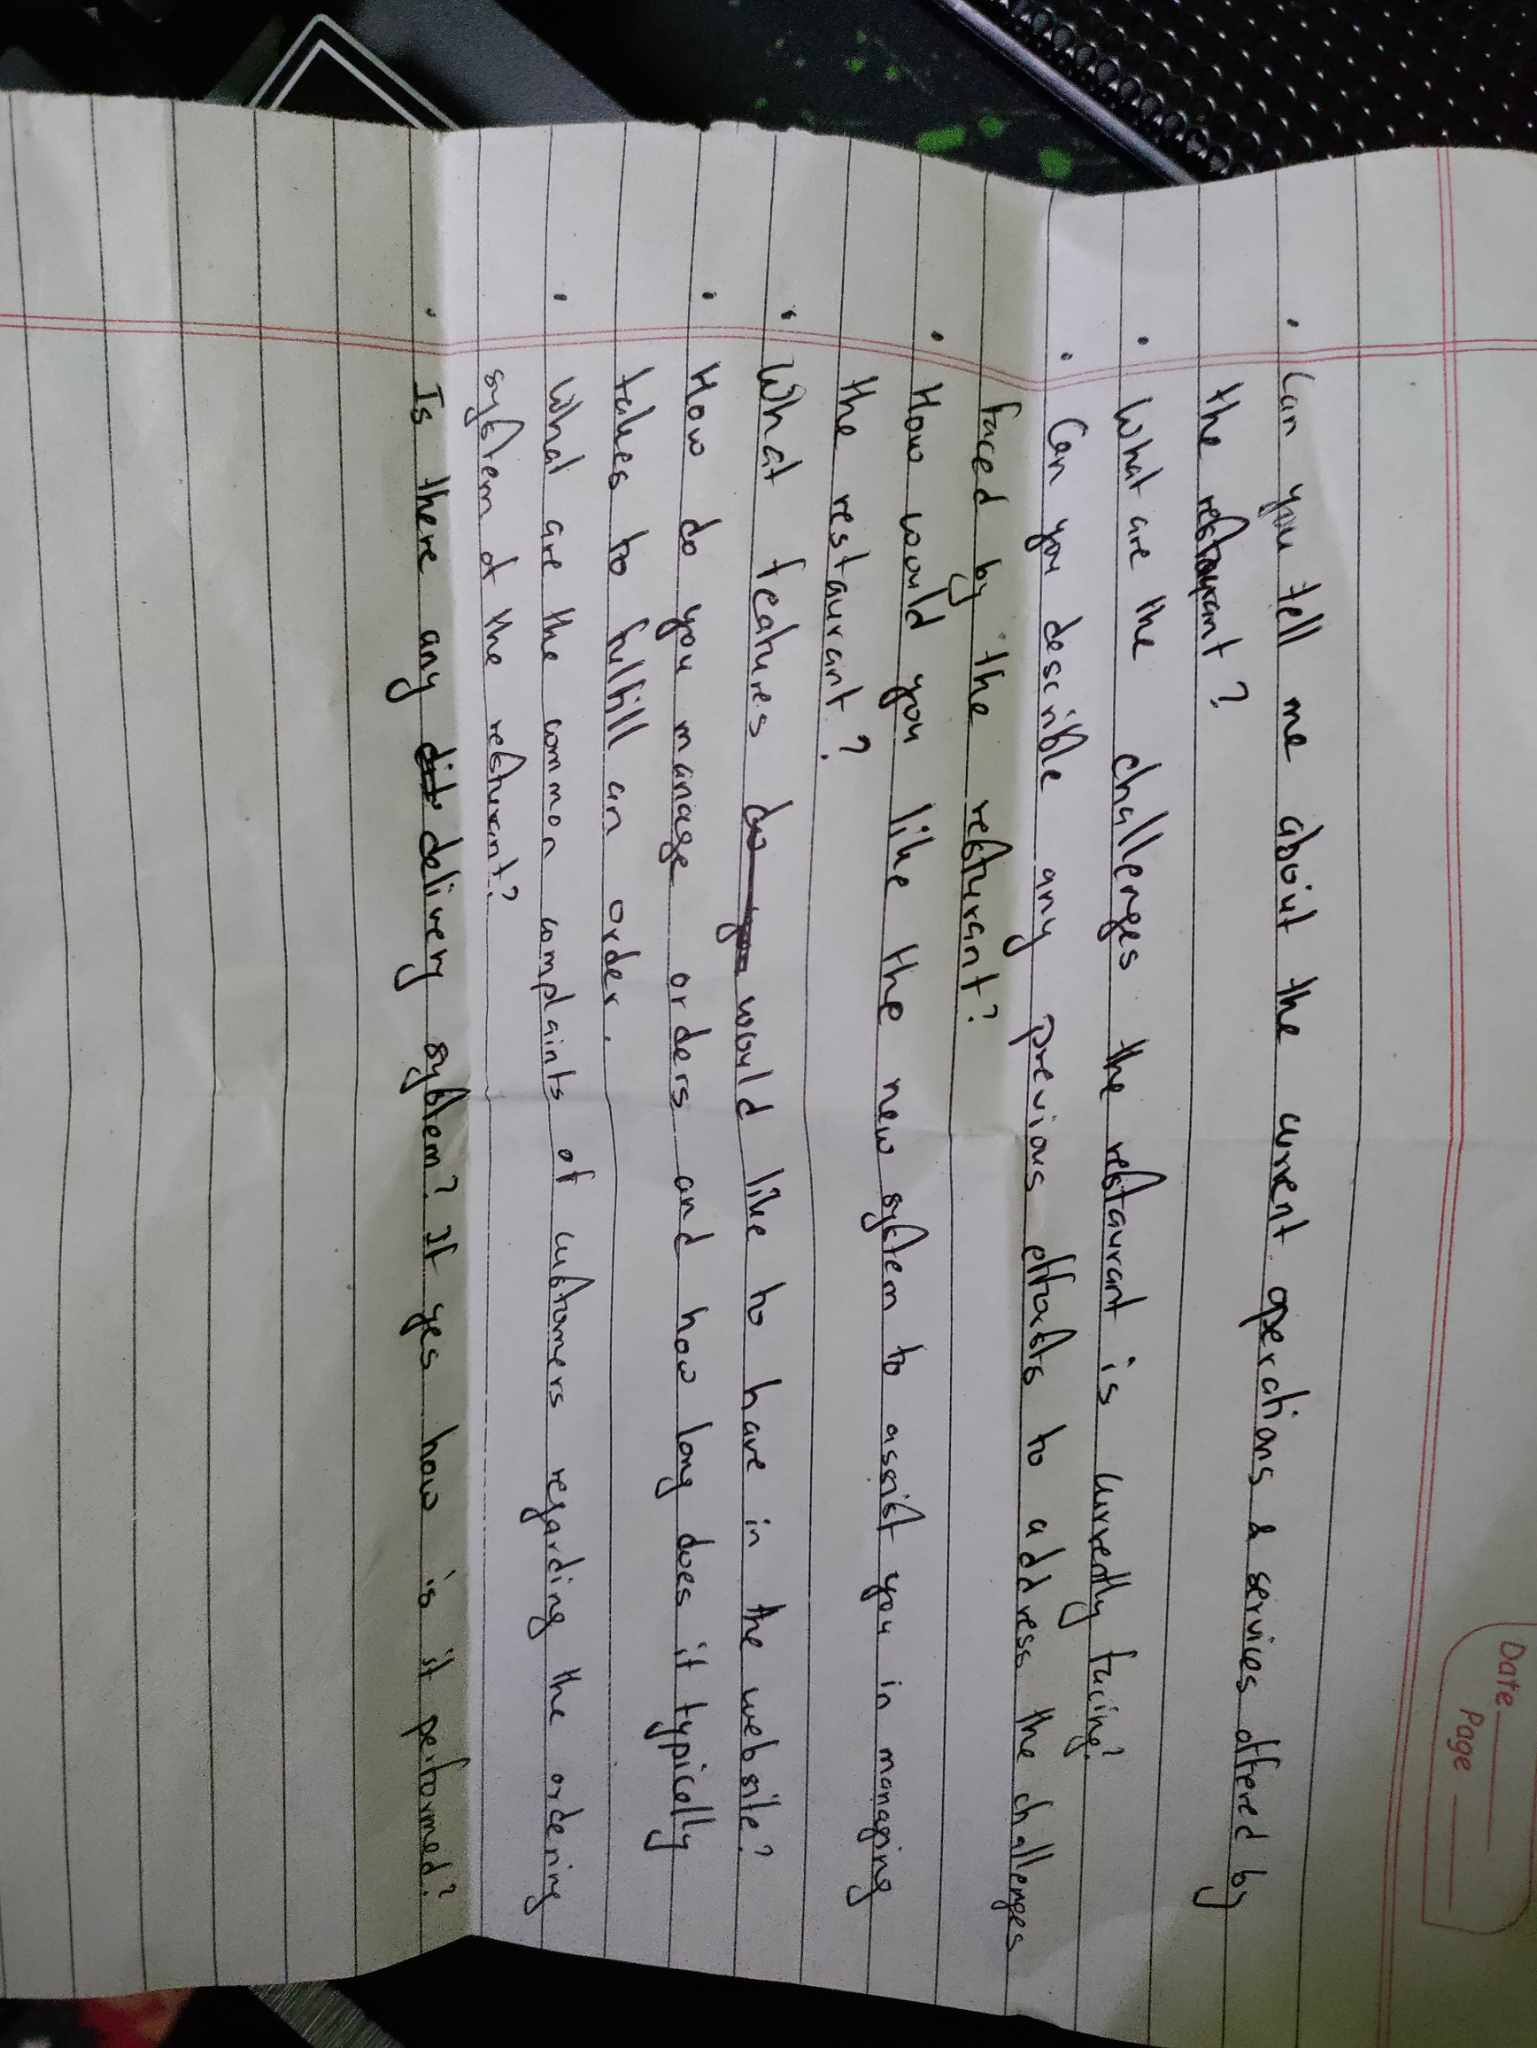 Date
Page
• Can you tell me about the current operations & services offered by
the restaurant?
• What are the challenges the restaurant is currently facing?
• Can you describle any previous efforts to address the challenges
faced by the resturant?
• How would you like the new system to assist you in managing
the restaurant?
• What features do you would like to have in the website?
• How do you manage orders and how long does it typically
takes to fulfill an order.
• What are the common complaints of customers regarding the ordering
system of the resturant?
• Is there any delivery system? If yes how is it performed?